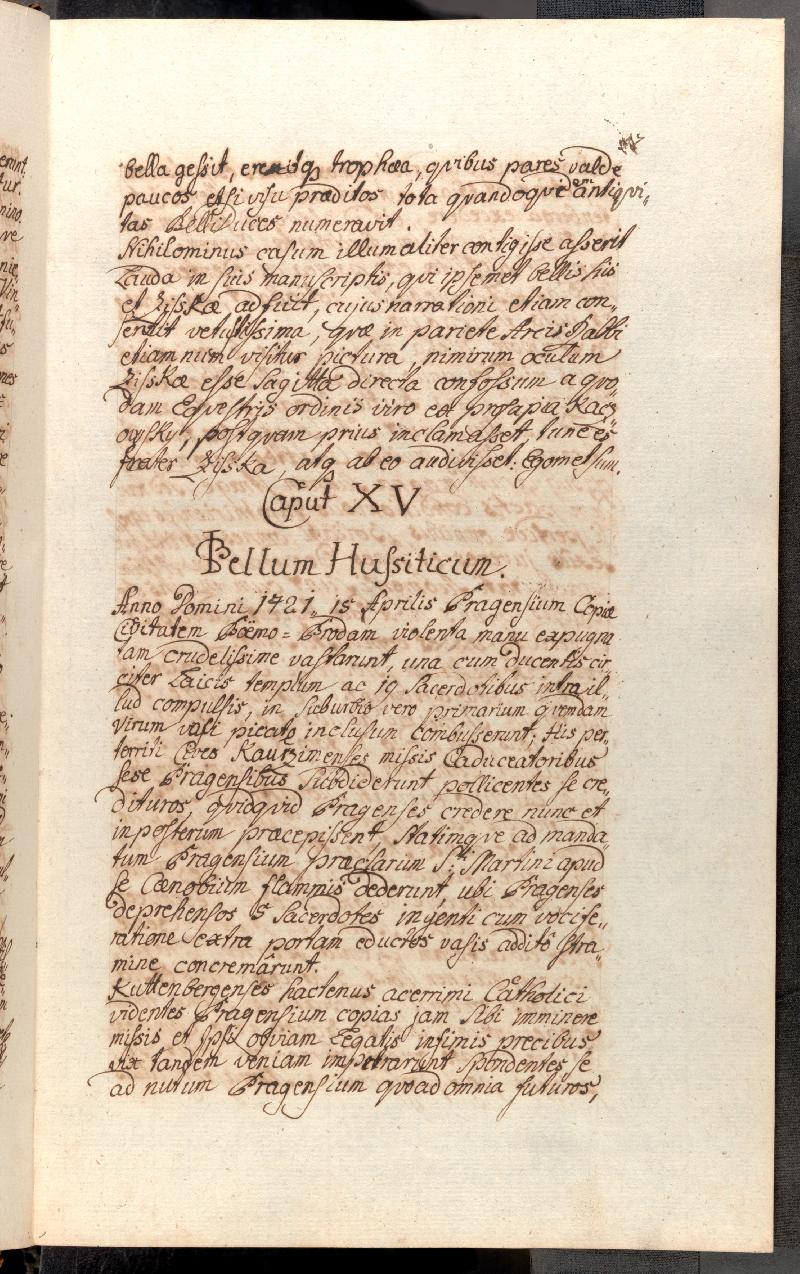 bella gessit, erexitq₃ trophæa, qvibus pares valde
paucos etsi visu præditos tota quandoqvidem antiqvi,,
tas Belliduces numeravit.
Nihilominus casum illum aliter contigisse asserit
Lauda in suis manuscriptis, qvi ipsemet bellis his
et Zisskæ adfuit, cujus narrationi etiam con,,
sentit vetustissima, qvæ in pariete Arcis Rabbi
etiamnum visitur pictura, nimirum oculum
Zisskæ esse sagittâ directa confossum a qvo,,
dam Eqvestris ordinis viro ex prosapia Kacz,,
owsky, postqvam prius inclamasset, tune es
frater Zisska, atq₃ ab eo audivisset: Egomet sum.
Caput XV
Bellum Hussiticum.
Anno Domini 1421,, 15 Aprilis Pragensium Copiæ
Civitatem Boëmo = Brodam violenta manu expugna
tam crudelissime vastarunt, una cum ducentis cir,,
citer Laicis templum ac 19 Sacerdotibus intra il,,
lud compulsis, in suburbio vero primarium qvendam
virum vasi picato inclusum combusserunt; His per,,
territi Cives Kaurzimenses missis Caduceatoribus
sese Pragensibus subdiderunt pollicentes se cre,,
dituros, qvidqvid Pragenses credere nunc et
in posterum præcepissent, statimqve ad manda,,
tum Pragensium præclarum S:ti Martini apud
se Cœnobium flammis dederunt, ubi Pragenses
deprehensos 5 Sacerdotes ingenti cum vocife,,
ratione extra portam eductos vasis addito stra,,
mine concremârunt.
Kuttenbergenses hactenus acerrimi Catholici
videntes Pragensium copias jam sibi imminere
missis et ipsi obviam Legatis infimis precibus
vix tandem veniam impetrarunt spondentes se
ad nutum Pragensium qvoad omnia futuros,